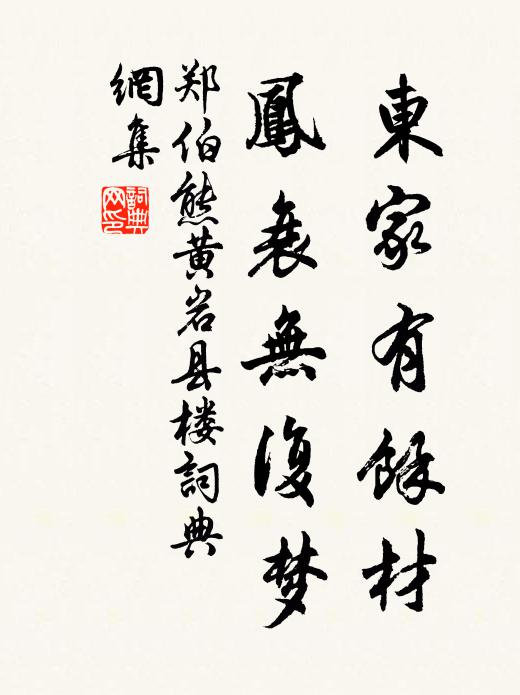 東家有餘材
鳳衰無復梦
郑伯熊黄岩县楼詞典
網集
詞典
网印